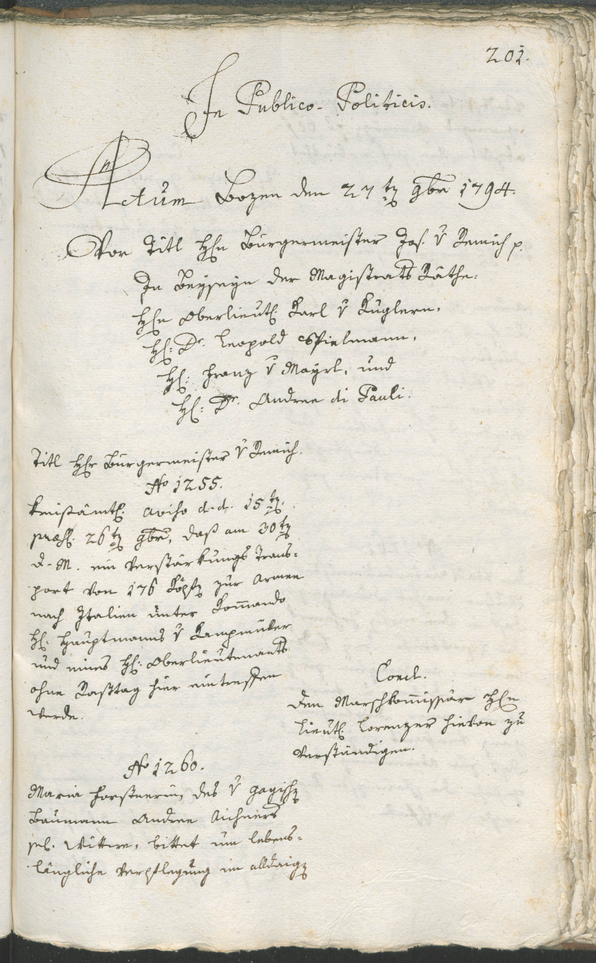 201.
In Publico-Politicis.
Actum Bozen den 27ten 9br 1794.
Vor Titl Hhn Bürgermeister Jos. v Remich p.
In Beyseyn der Magistrats Räthe:
Hhn Oberlieut: Karl v Kuglern,
H: Dr. Leopold Spielmann,
H: Franz v Mayrl, und
H: Dr. Andree di Pauli.
Titl Hhr Bürgermeister v Remich.
No 1255.
Kreisämtl: Aviso d.d. 15ten,
präs: 26ten 9br, daß am 30ten
d. M. ein Verstärkungs Trans-
port von 176 Köpfen zur Armee
nach Italien unter Kommando
H: Hauptmanns v
und eines H: Oberlieutenants
ohne Rasttag hier eintreffen
werde.
Concl.
Dem Marschkommissär Hhn
Lieut: Lorenzer hievon zu
verständigen.
No 1260.
Maria Forstnerin, des v
Baumann Andree Aichners
sel. Wittwe, bittet um lebens-
längliche Verpflegung im alldaigen